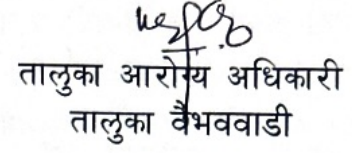 तालुका आरोग्य अधिकारी
तालुका वैभववाडी